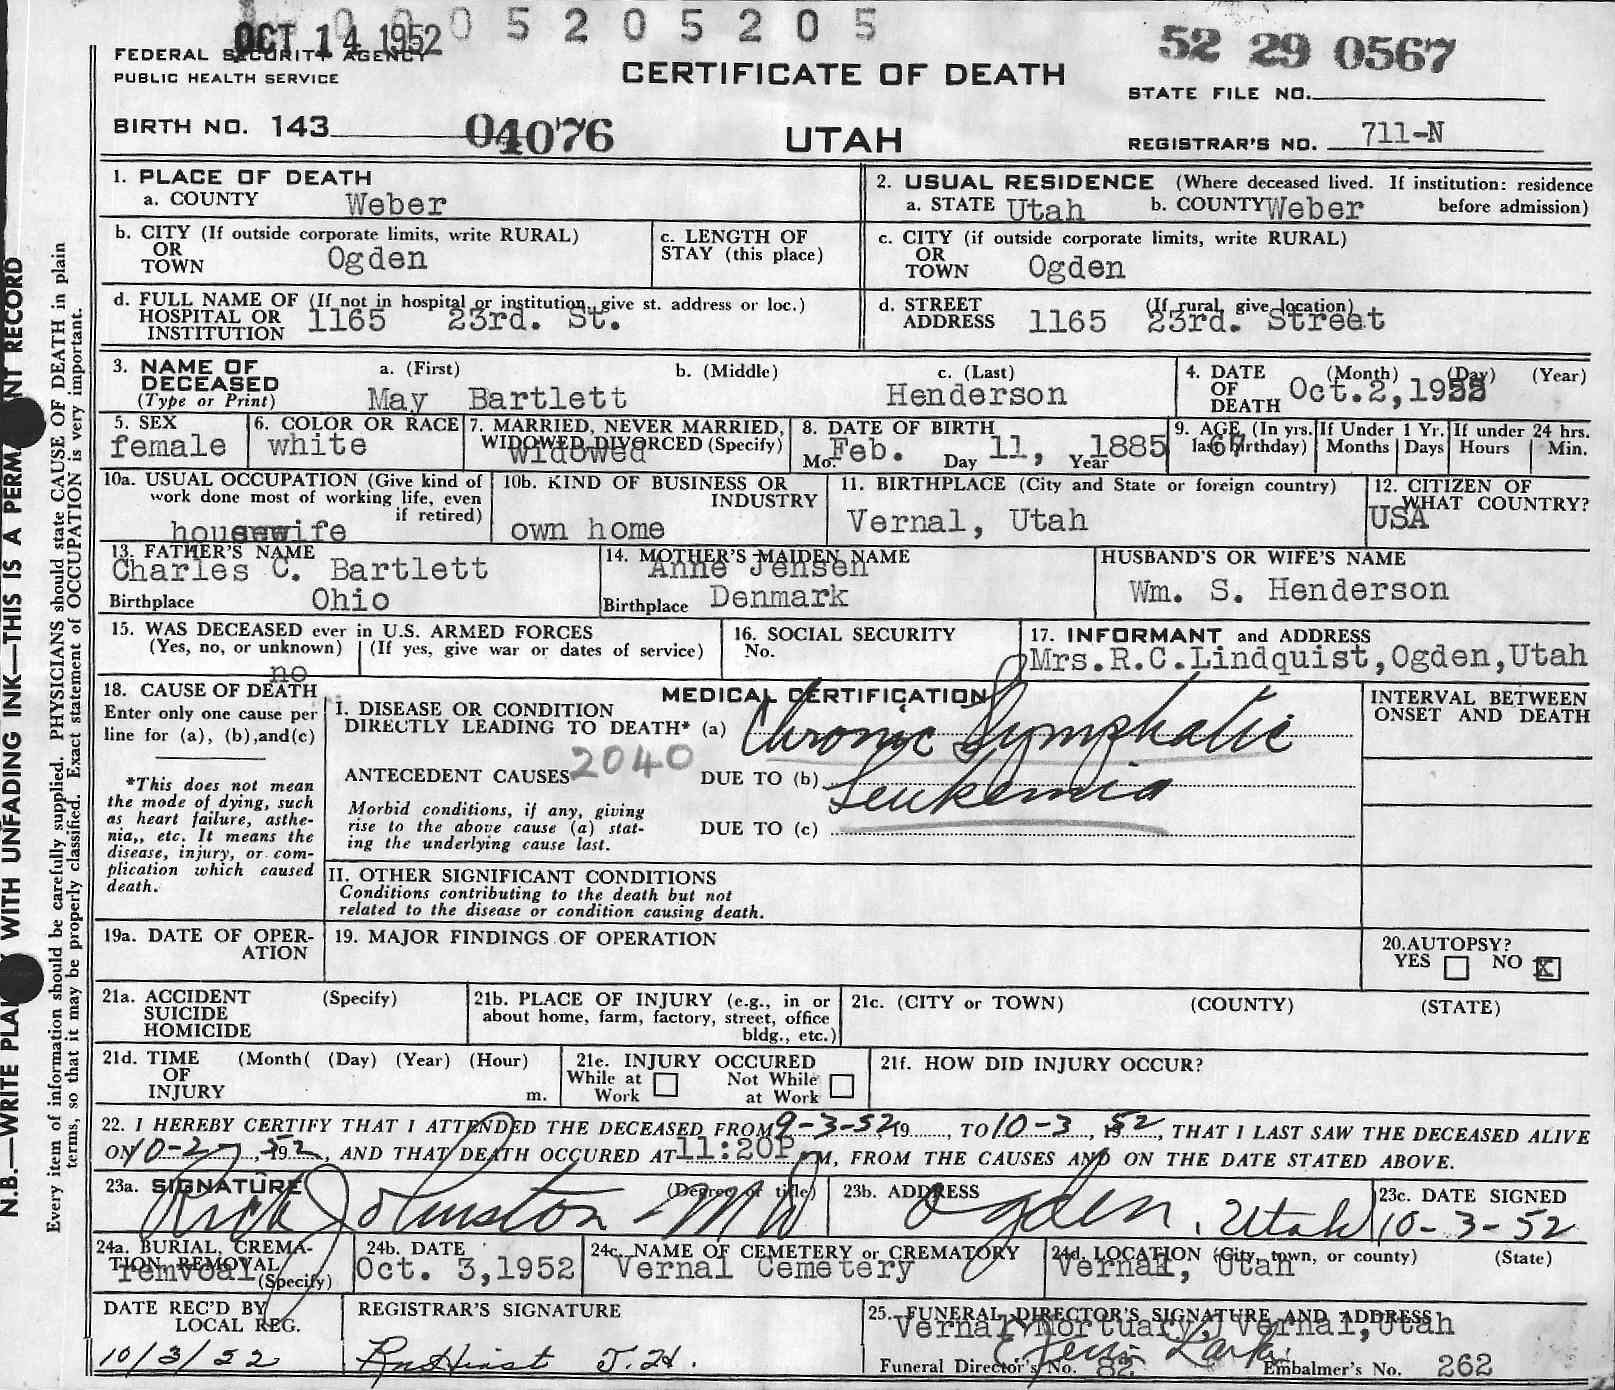 OCT 14 1952 0 5 2 0 5 2 0 5
52 29 0567
FEDERAL SECURITY AGENCY
PUBLIC HEALTH SERVICE
CERTIFICATE OF DEATH
STATE FILE NO.
BIRTH NO. 143 04076
UTAH
REGISTRAR'S NO. 711-N
1. PLACE OF DEATH
a. COUNTY Weber
2. USUAL RESIDENCE (Where deceased lived. If institution: residence
a. STATE Utah b. COUNTY Weber before admission)
b. CITY (If outside corporate limits, write RURAL)
OR
TOWN Ogden
c. LENGTH OF
STAY (this place)
c. CITY (if outside corporate limits, write RURAL)
OR
TOWN Ogden
d. FULL NAME OF (If not in hospital or institution, give st. address or loc.)
HOSPITAL OR
INSTITUTION 1165 23rd. St.
d. STREET (If rural, give location)
ADDRESS 1165 23rd. Street
3. NAME OF
DECEASED
(Type or Print)
a. (First) b. (Middle) c. (Last)
May Bartlett Henderson
4. DATE (Month) (Day) (Year)
OF
DEATH Oct.2,1952
5. SEX
female
6. COLOR OR RACE
white
7. MARRIED, NEVER MARRIED,
WIDOWED, DIVORCED (Specify)
Widowed
8. DATE OF BIRTH
Mo. Feb. Day 11, Year 1885
9. AGE (In yrs.
last birthday) 67
If Under 1 Yr.
Months Days
If under 24 hrs.
Hours Min.
10a. USUAL OCCUPATION (Give kind of
work done most of working life, even
if retired)
housewife
10b. KIND OF BUSINESS OR
INDUSTRY
own home
11. BIRTHPLACE (City and State or foreign country)
Vernal, Utah
12. CITIZEN OF
WHAT COUNTRY?
USA
13. FATHER'S NAME
Charles C. Bartlett
Birthplace Ohio
14. MOTHER'S MAIDEN NAME
Anne Jensen
Birthplace Denmark
HUSBAND'S OR WIFE'S NAME
Wm. S. Henderson
15. WAS DECEASED ever in U.S. ARMED FORCES
(Yes, no, or unknown) (If yes, give war or dates of service)
no
16. SOCIAL SECURITY
No.
17. INFORMANT and ADDRESS
Mrs.R.C.Lindquist,Ogden,Utah
18. CAUSE OF DEATH
Enter only one cause per
line for (a), (b),and(c)
*This does not mean
the mode of dying, such
as heart failure, asthe-
nia,, etc. It means the
disease, injury, or com-
plication which caused
death.
MEDICAL CERTIFICATION
I. DISEASE OR CONDITION
DIRECTLY LEADING TO DEATH* (a) Chronic Lymphatic
2040
ANTECEDENT CAUSES DUE TO (b) Leukemia
Morbid conditions, if any, giving
rise to the above cause (a) stat-
ing the underlying cause last.
DUE TO (c)
INTERVAL BETWEEN
ONSET AND DEATH
II. OTHER SIGNIFICANT CONDITIONS
Conditions contributing to the death but not
related to the disease or condition causing death.
19a. DATE OF OPER-
ATION
19. MAJOR FINDINGS OF OPERATION
20.AUTOPSY?
YES NO X
21a. ACCIDENT (Specify)
SUICIDE
HOMICIDE
21b. PLACE OF INJURY (e.g., in or
about home, farm, factory, street, office
bldg., etc.)
21c. (CITY or TOWN) (COUNTY) (STATE)
21d. TIME (Month( (Day) (Year) (Hour)
OF
INJURY m.
21e. INJURY OCCURED
While at Work Not While at Work
21f. HOW DID INJURY OCCUR?
22. I HEREBY CERTIFY THAT I ATTENDED THE DECEASED FROM 9-3-52, 19, TO 10-3, 1952, THAT I LAST SAW THE DECEASED ALIVE
ON 10-2, 1952, AND THAT DEATH OCCURED AT 11:20P M, FROM THE CAUSES AND ON THE DATE STATED ABOVE.
23a. SIGNATURE (Degree or title)
Rich Johnston MD
23b. ADDRESS
Ogden, Utah
23c. DATE SIGNED
10-3-52
24a. BURIAL, CREMA-
TION, REMOVAL
(Specify)
remvoal
24b. DATE
Oct. 3,1952
24c. NAME OF CEMETERY or CREMATORY
Vernal Cemetery
24d. LOCATION (City, town, or county) (State)
Vernal, Utah
DATE REC'D BY
LOCAL REG.
10/3/52
REGISTRAR'S SIGNATURE
J.H.
25. FUNERAL DIRECTOR'S SIGNATURE AND ADDRESS
Vernal Mortuary, Vernal,Utah
Funeral Director's No. 82 Embalmer's No. 262
N.B.—WRITE PLAINLY WITH UNFADING INK—THIS IS A PERMANENT RECORD
Every item of information should be carefully supplied. PHYSICIANS should state CAUSE OF DEATH in plain
terms, so that it may be properly classified. Exact statement of OCCUPATION is very important.